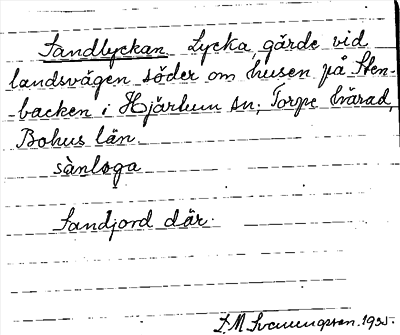 Sandlyckan Lycka, gärde vid
landsvägen söder om husen på Sten-
-backen i Hjärtum sn; Torpe härad,
Bohus län.
sànloga
Sandjord där.
D. M. Svenungsson. 1935.